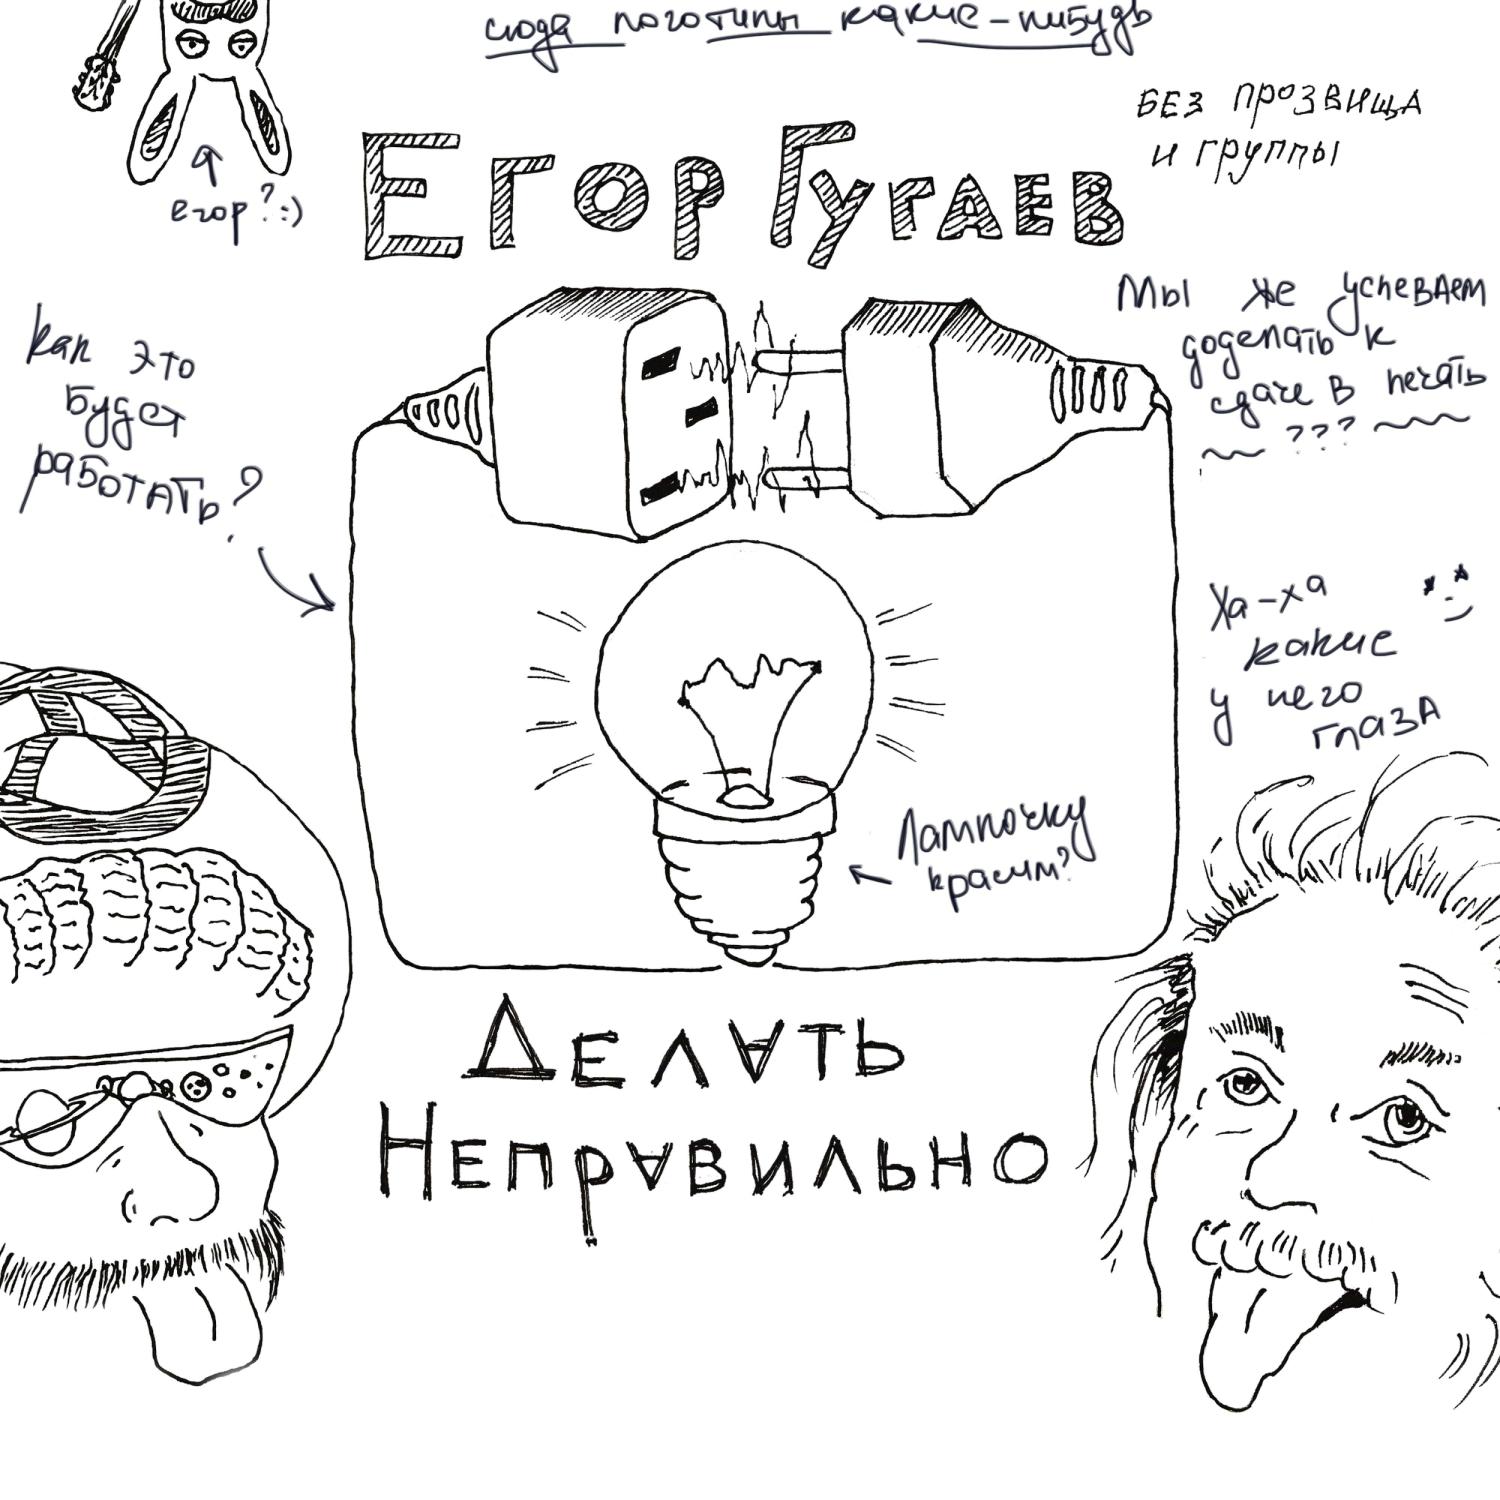 сюда логотипы какие-нибудь
БЕЗ ПРОЗВИЩА
И ГРУППЫ
егор?:)
ЕГОР ГУГАЕВ
Как это
будет
работать?
Мы же успеваем
доделать к
сдаче в печать
???
Ха-ха
какие
у него
глаза
Лампочку
красим?
ДЕЛАТЬ
НЕПРАВИЛЬНО